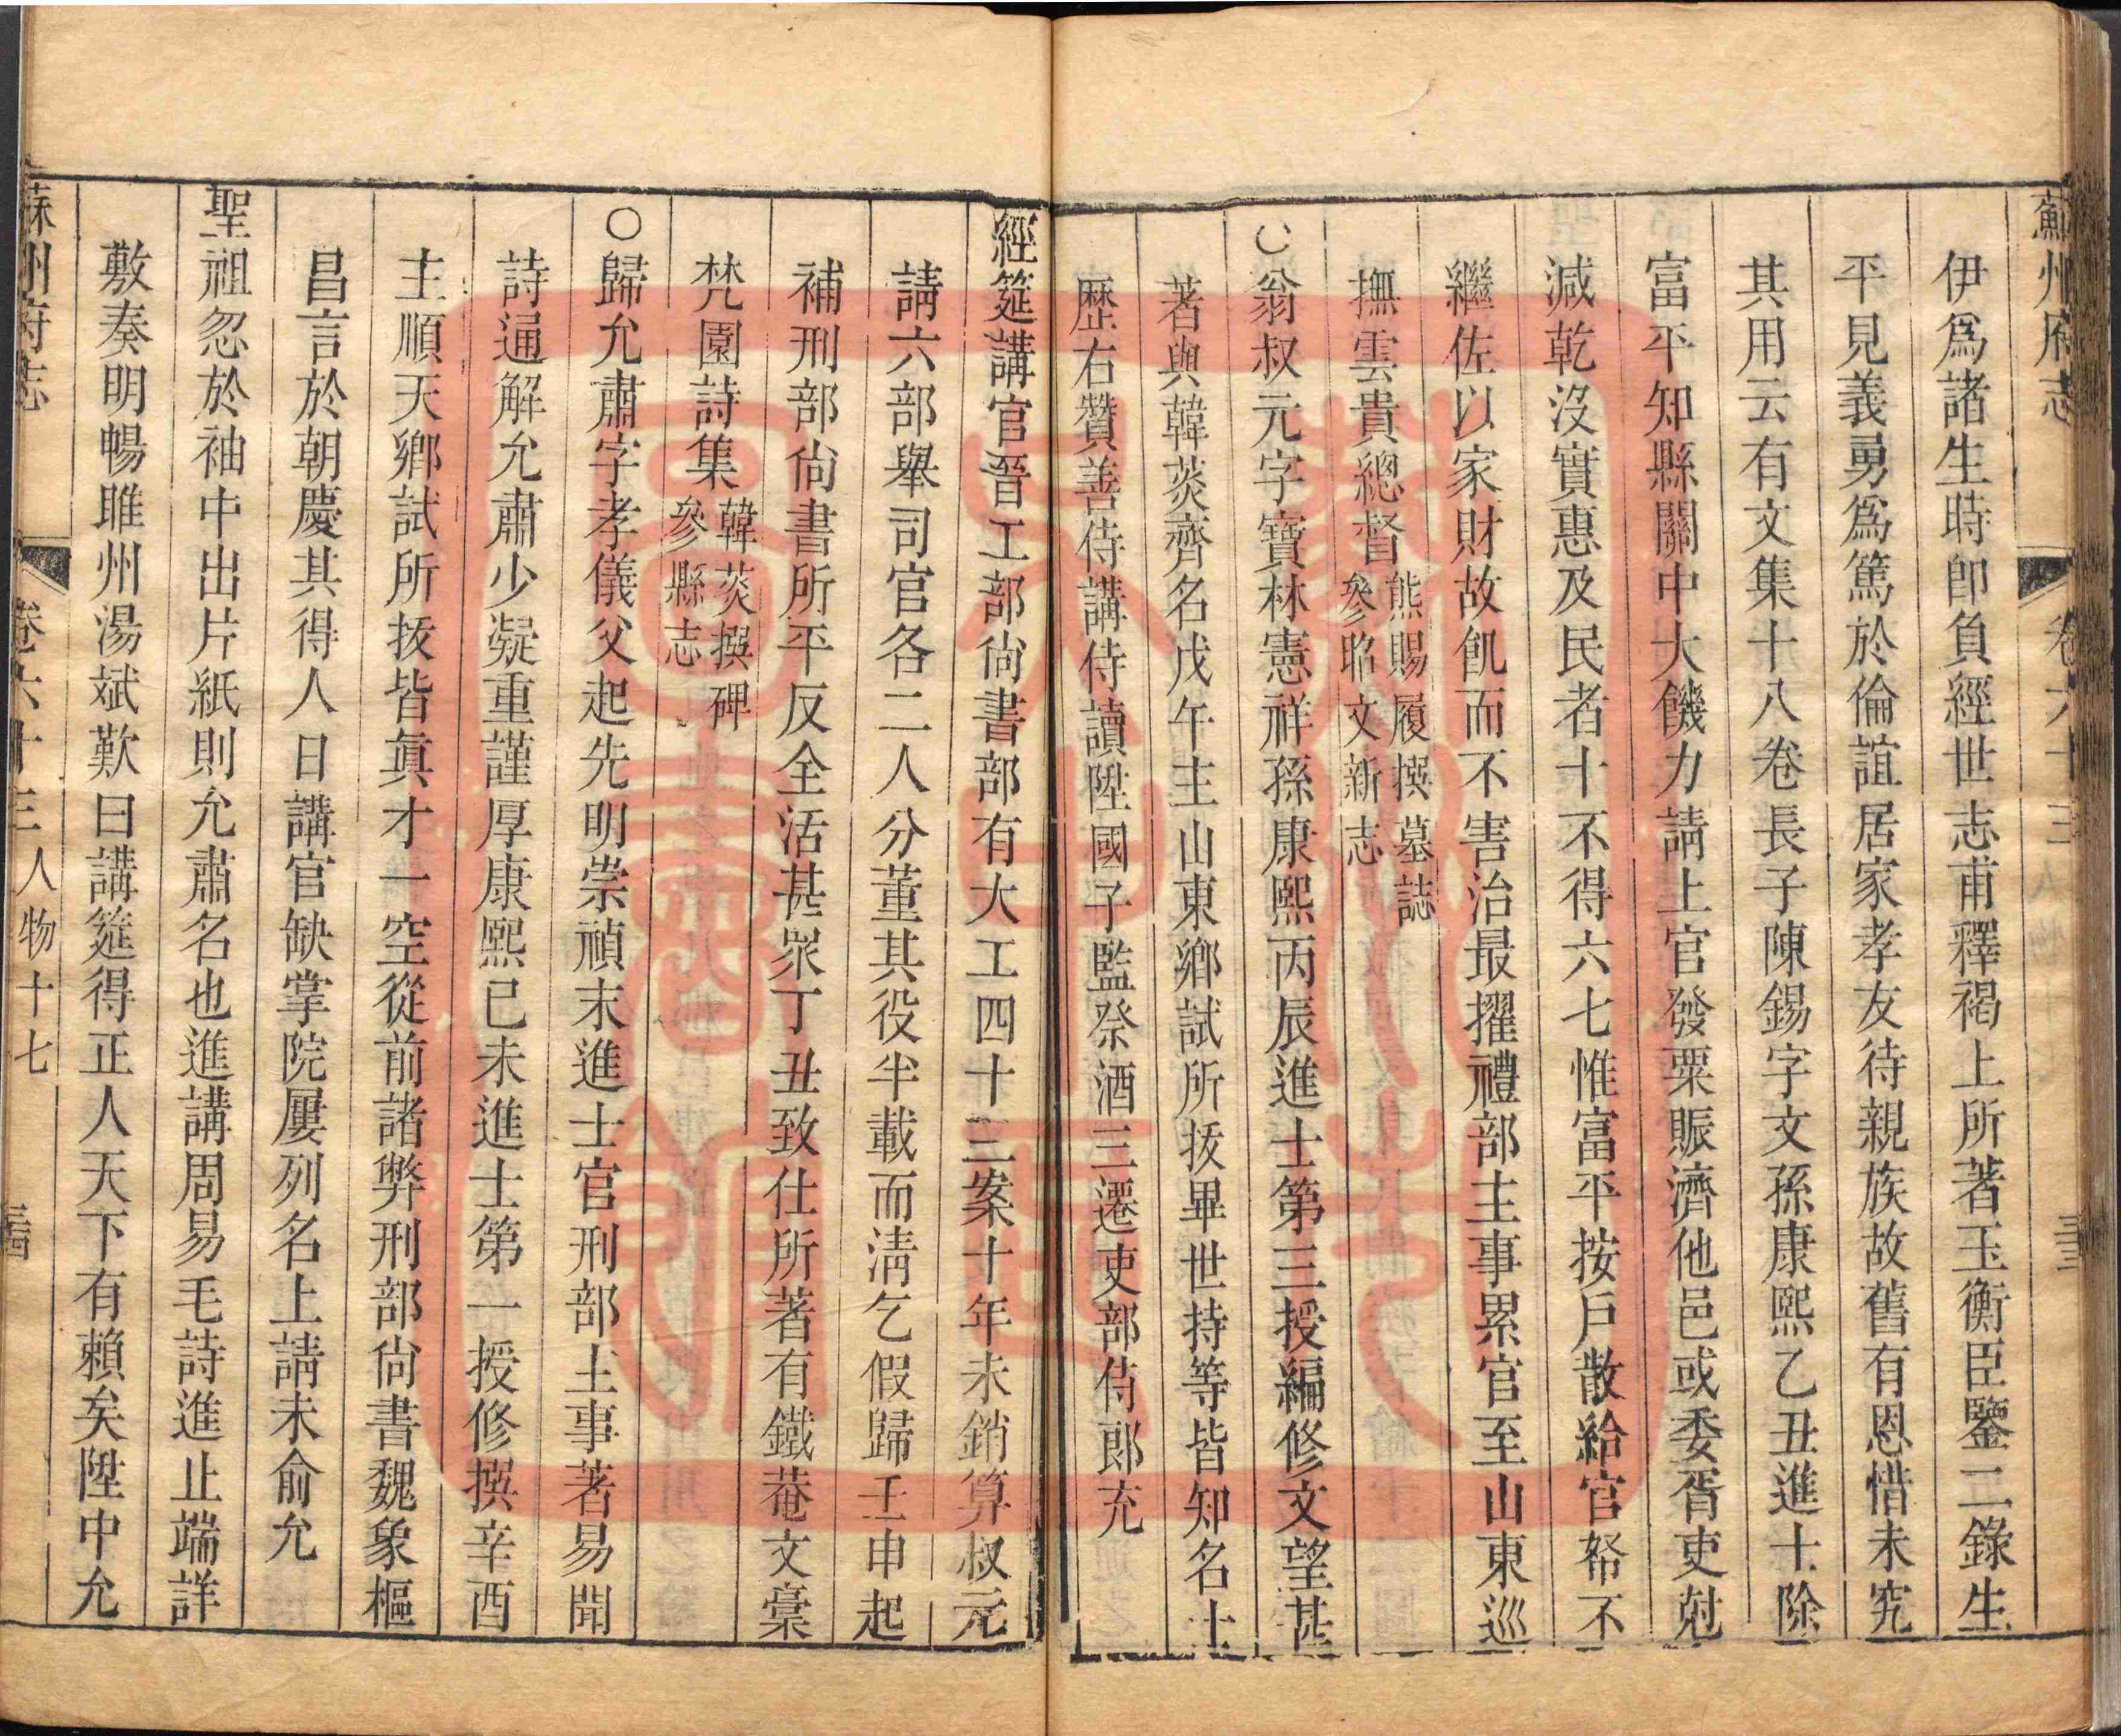 蘇州府志
卷六十三
人物
三三
伊爲諸生時卽負經世志甫釋褐上所著玉衡臣鑒二錄生
平見義勇爲篤於倫誼居家孝友待親族故舊有恩惜未究
其用云有文集十八卷長子陳錫字文孫康熙乙丑進士除
富平知縣關中大饑力請上官發粟賑濟他邑或委胥吏尅
減乾沒實惠及民者十不得六七惟富平按戶散給官帑不
繼佐以家財故飢而不害治最擢禮部主事累官至山東巡
撫雲貴總督熊賜履撰墓誌
參昭文新志
〇翁叔元字寶林憲祥孫康熙丙辰進士第三授編修文望甚
著與韓菼齊名戊午主山東鄉試所拔畢世持等皆知名士
歷右贊善侍講侍讀陞國子監祭酒三遷吏部侍郎充
經筵講官晉工部尙書部有大工四十三案十年未銷算叔元
請六部舉司官各二人分董其役半載而淸乞假歸壬申起
補刑部尙書所平反全活甚眾丁丑致仕所著有鐵菴文稾
梵園詩集韓菼撰碑
參縣志
〇歸允肅字孝儀父起先明崇禎末進士官刑部主事著易聞
詩通解允肅少凝重謹厚康熙己未進士第一授修撰辛酉
主順天鄉試所拔皆眞才一空從前諸弊刑部尙書魏象樞
昌言於朝慶其得人日講官缺掌院屢列名上請未俞允
聖祖忽於袖中出片紙則允肅名也進講周易毛詩進止端詳
敷奏明暢睢州湯斌歎曰講筵得正人天下有賴矣陞中允
蘇州府志
卷六十三
人物十七
三四